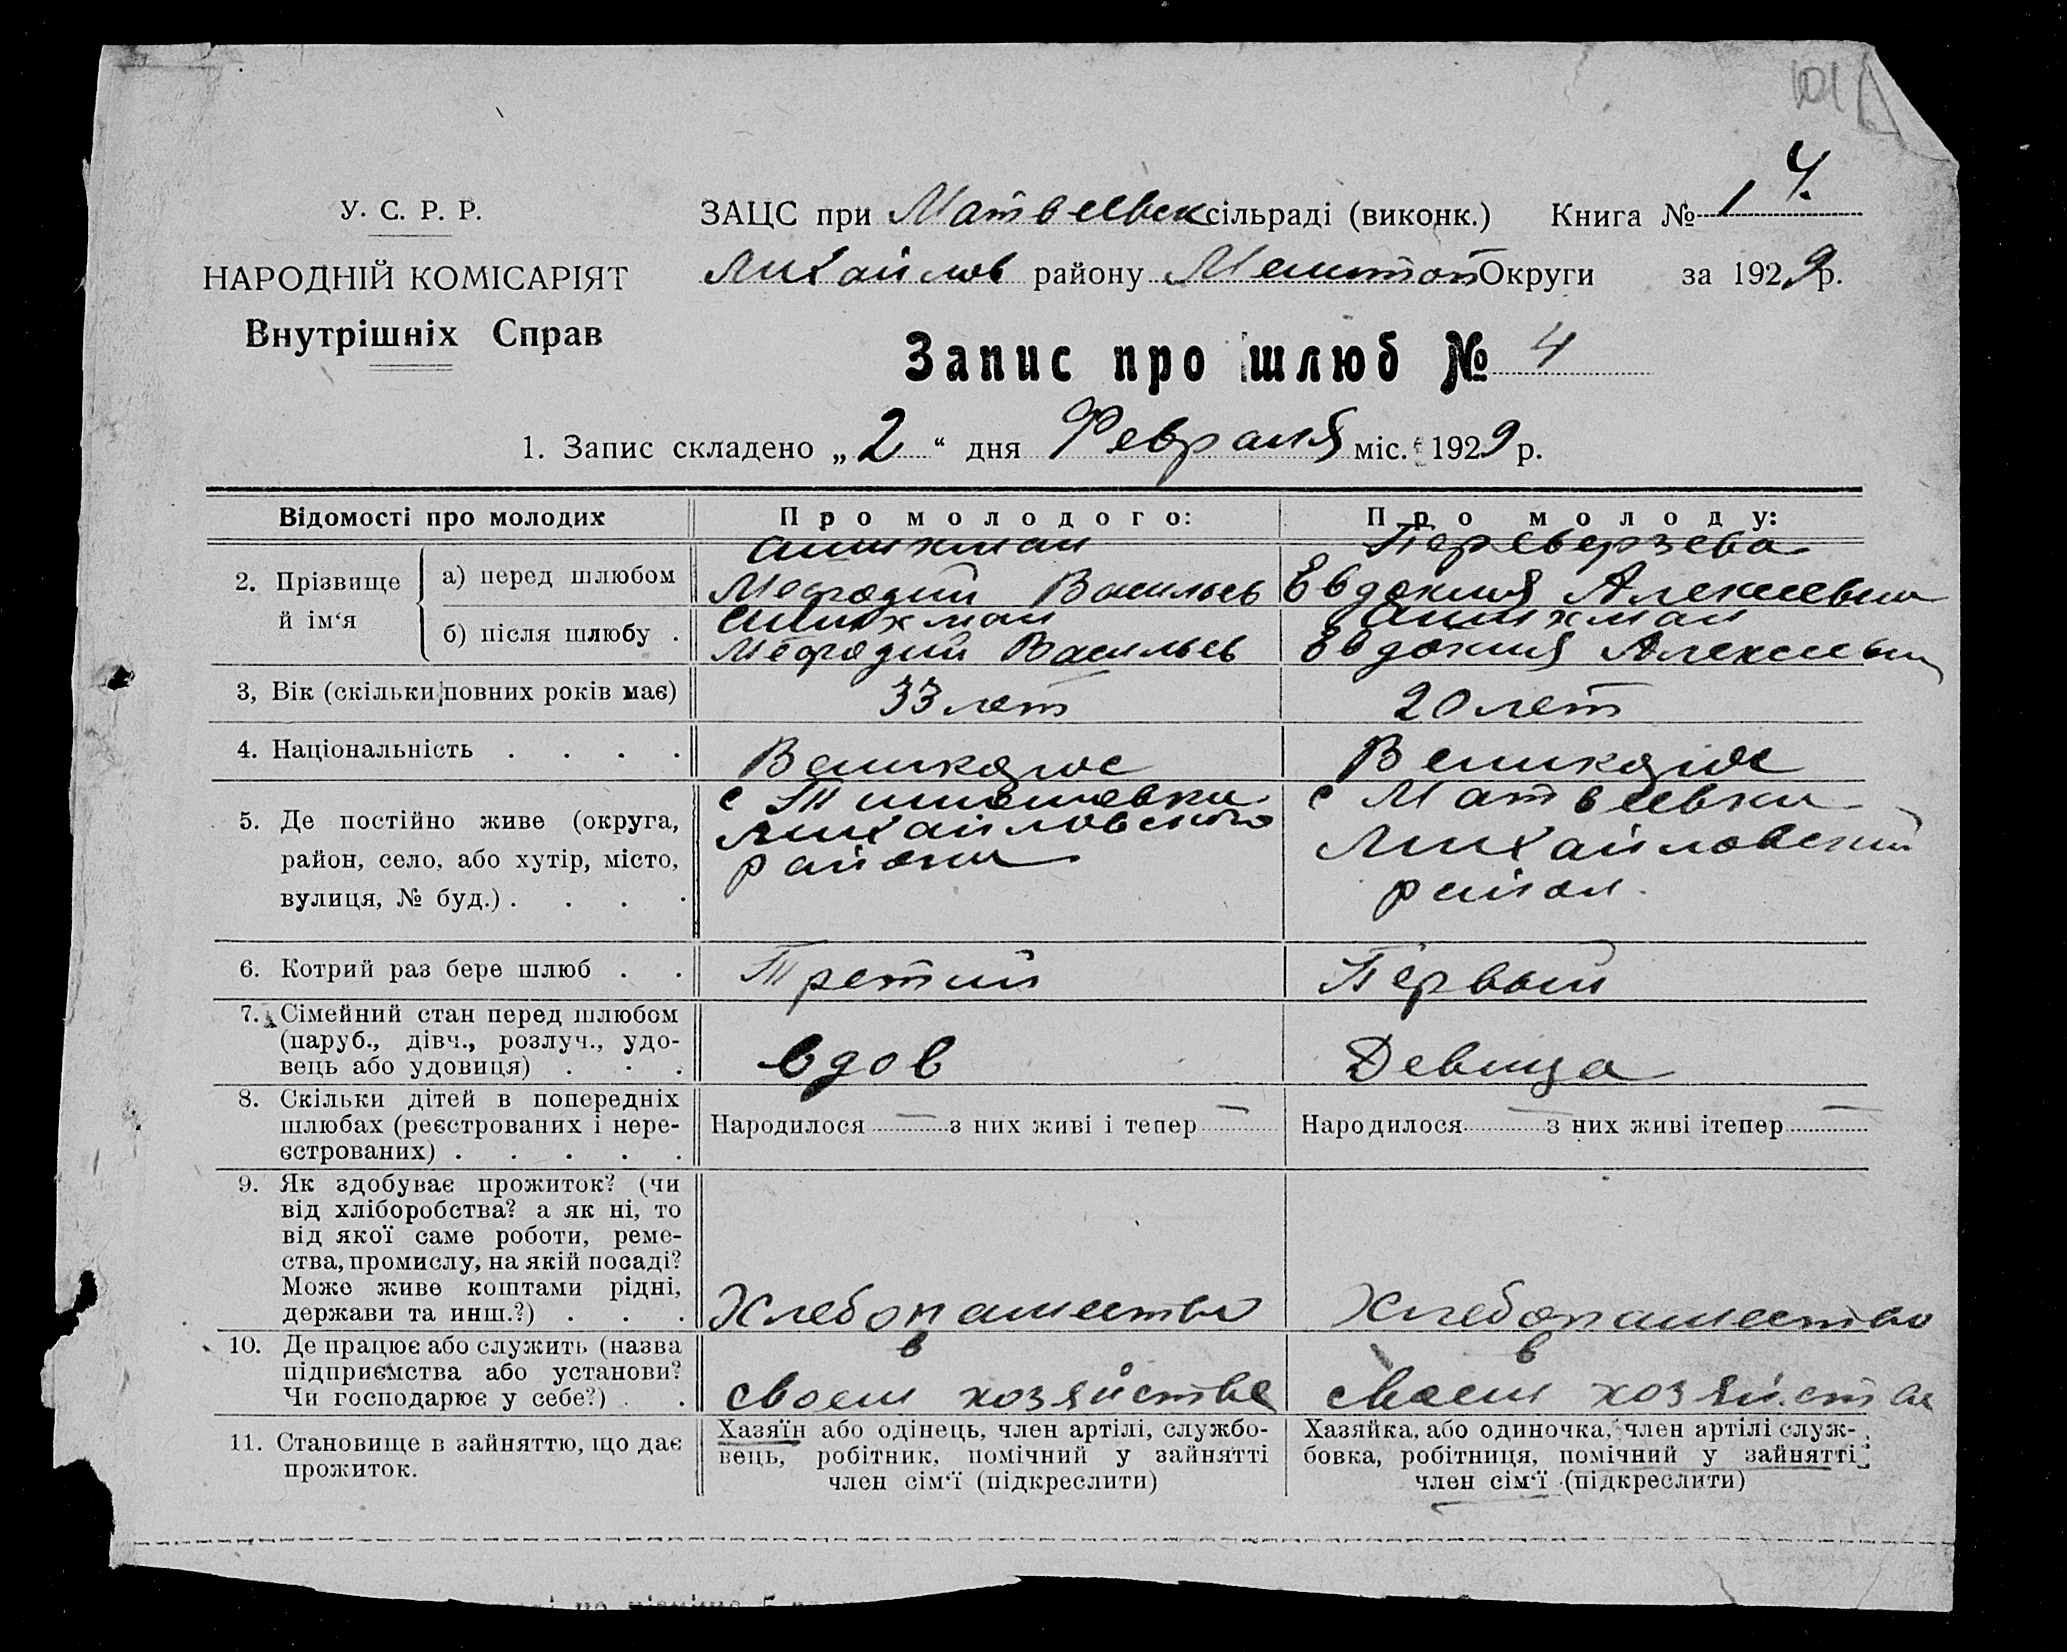 101
4.
У. С. Р. Р.
ЗАЦС при Матвеевск сільраді (виконк.) Книга № 1
НАРОДНІЙ КОМІСАРІЯТ
Михайлов району Мелитоп Округи за 1929 р.
Внутрішніх Справ
Запис про шлюб № 4
1. Запис складено „2" дня Февраля міс. 1929 р.
Відомості про молодих Про молодого: Про молоду:
2. Прізвище й ім'я
а) перед шлюбом
Мефодий Васильев
Переверзева
Евдокия Алексеевна
б) після шлюбу .
Мефодий Васильев
Евдокия Алексеевн
3, Вік (скільки повних років має) 33 лет 20 лет
4. Національність . . . . Великорос Великорос
5. Де постійно живе (округа,
район, село, або хутір, місто,
вулиця, № буд.) . . . .
с Тимошовки
Михайловского
района
с Матвеевки
Михайловский
район.
6. Котрий раз бере шлюб . . Третий Первый
7. Сімейний стан перед шлюбом
(паруб., дівч., розлуч., удо-
вець або удовиця) . . .
вдов Девица
8. Скільки дітей в попередніх
шлюбах (реєстрованих і нере-
єстрованих) . . . . .
Народилося — з них живі і тепер —
Народилося — з них живі ітепер —
9. Як здобуває прожиток? (чи
від хліборобства? а як ні, то
від якої саме роботи, реме-
ства, промислу, на якій посаді?
Може живе коштами рідні,
держави та инш.?) . . .
Хлебопашество Хлебопашество
10. Де працює або служить (назва
підприємства або установи?
Чи господарює у себе?) . .
в
своем хозяйстве
в
своем хозяйстве
11. Становище в зайняттю, що дає
прожиток.
Хазяїн або одінець, член артілі, службо-
вець, робітник, помічний у зайнятті
член сім'ї (підкреслити)
Хазяйка, або одиночка, член артілі служ-
бовка, робітниця, помічний у зайнятті
член сім'ї (підкреслити)